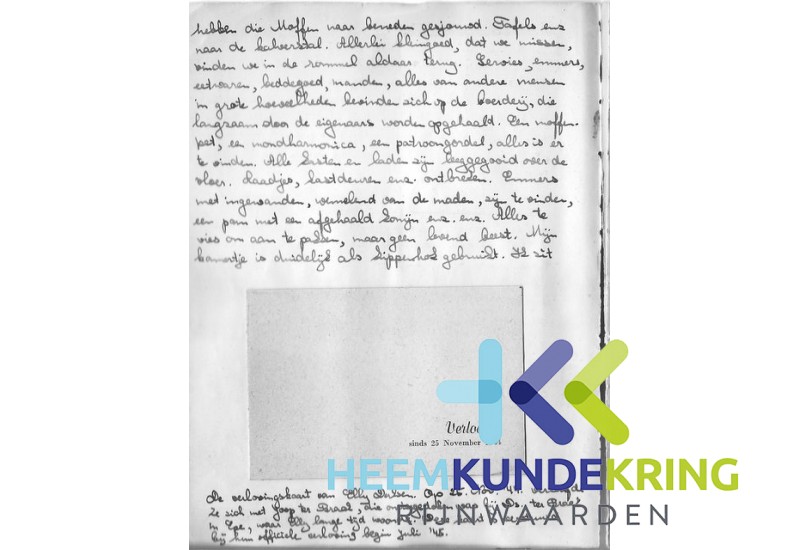 hebben die Moffen naar beneden gesjouwd. Tafels enz
naar de kalverstal. Allerlei kleingoed, dat we missen,
vinden we in de rommel aldaar terug. Servies, emmers,
eetwaren, beddegoed, manden, alles van andere mensen
in grote hoeveelheden bevinden zich op de boerderij, die
langzaam door de eigenaars worden opgehaald. Een moffen-
pet, een mondharmonica, een patroongordel, alles is er
te vinden. Alle kasten en laden zijn leeggegooid over de
vloer. Laadjes, kastdeuren enz. ontbreken. Emmers
met ingewanden, wemelend van de maden, zijn te vinden,
een pan met een afgehaald konijn enz. enz. Alles te
vies om aan te pakken, maar geen levend beest. Mijn
kamertje is duidelijk als kippenhok gebruikt. Ik zit
sinds 25 November
HEEMKUNDEKRING
RIJNWAARDEN
De verlovingskaart van Elly Op 25 Nov. 44
ze zich met Joop ter Braak, die bij Ds. ter Braak
in Epe, waar Elly lange tijd
bij hun officiele verloving begin Juli '45.